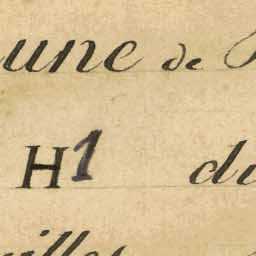 une de
H1 du
uilles